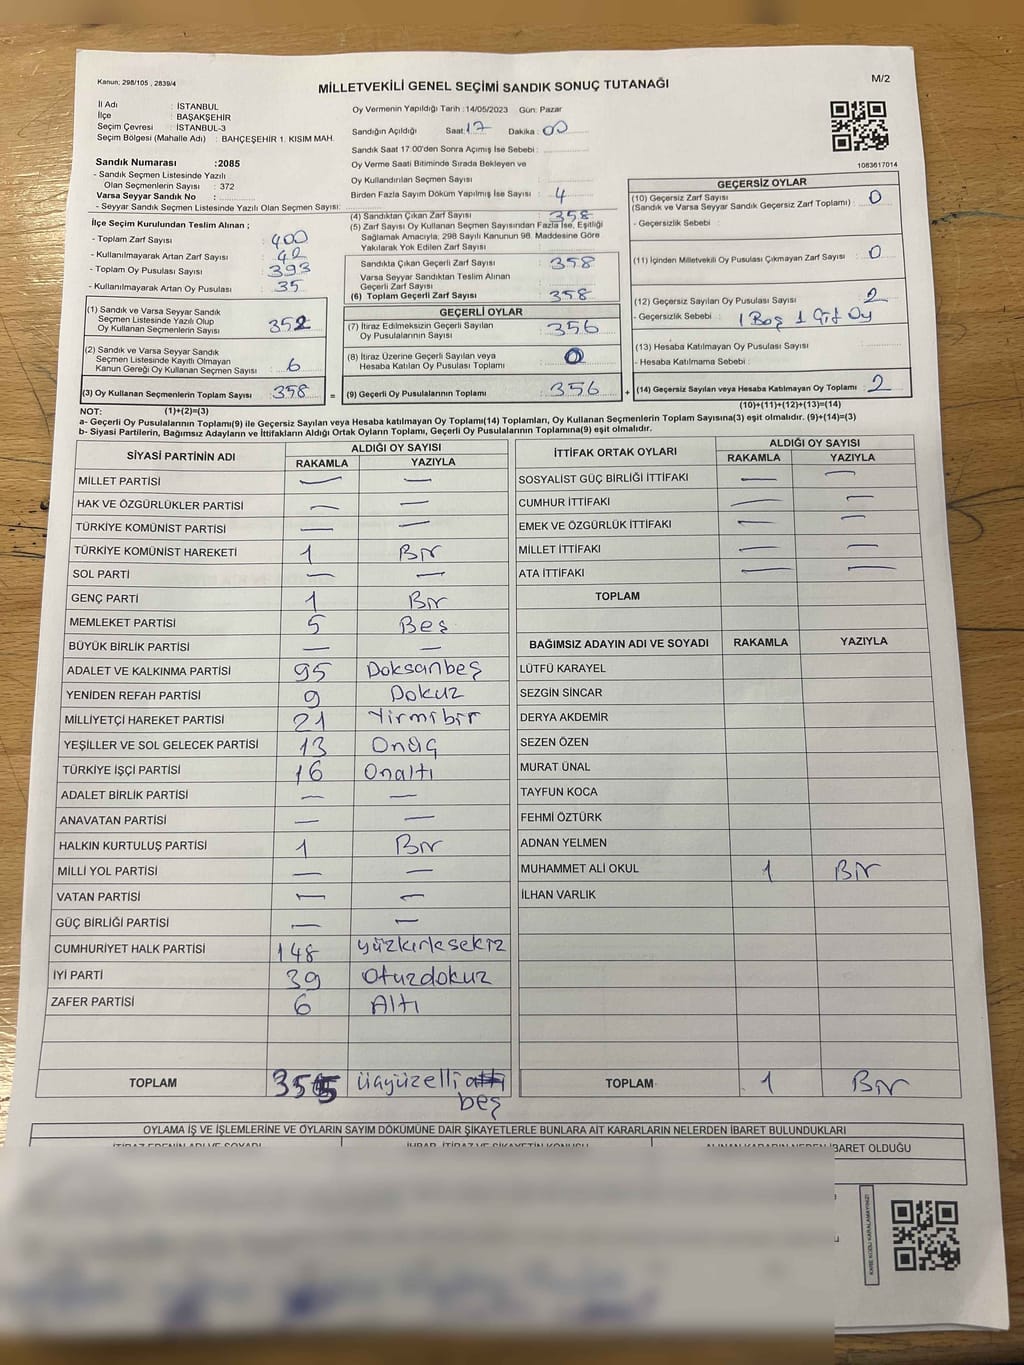 Kanun; 298/105 , 2839/4
MİLLETVEKİLİ GENEL SEÇİMİ SANDIK SONUÇ TUTANAĞI
M/2
İl Adı : İSTANBUL
İlçe : BAŞAKŞEHİR
Seçim Çevresi : İSTANBUL-3
Seçim Bölgesi (Mahalle Adı) : BAHÇEŞEHİR 1. KISIM MAH.
Sandık Numarası :2085
- Sandık Seçmen Listesinde Yazılı
Olan Seçmenlerin Sayısı : 372
Varsa Seyyar Sandık No :
- Seyyar Sandık Seçmen Listesinde Yazılı Olan Seçmen Sayısı:
Oy Vermenin Yapıldığı Tarih :14/05/2023 Gün: Pazar
Sandığın Açıldığı Saat: 17 Dakika : 00
Sandık Saat 17:00'den Sonra Açımış İse Sebebi :
Oy Verme Saati Bitiminde Sırada Bekleyen ve
Oy Kullandırılan Seçmen Sayısı :
Birden Fazla Sayım Döküm Yapılmış İse Sayısı : 4
1083617014
İlçe Seçim Kurulundan Teslim Alınan ;
- Toplam Zarf Sayısı : 400
- Kullanılmayarak Artan Zarf Sayısı : 42
- Toplam Oy Pusulası Sayısı : 393
- Kullanılmayarak Artan Oy Pusulası : 35
(1) Sandık ve Varsa Seyyar Sandık
Seçmen Listesinde Yazılı Olup
Oy Kullanan Seçmenlerin Sayısı : 352
(2) Sandık ve Varsa Seyyar Sandık
Seçmen Listesinde Kayıtlı Olmayan
Kanun Gereği Oy Kullanan Seçmen Sayısı : 6
(3) Oy Kullanan Seçmenlerin Toplam Sayısı : 358
(4) Sandıktan Çıkan Zarf Sayısı : 358
(5) Zarf Sayısı Oy Kullanan Seçmen Sayısından Fazla İse, Eşitliği
Sağlamak Amacıyla, 298 Sayılı Kanunun 98. Maddesine Göre
Yakılarak Yok Edilen Zarf Sayısı :
Sandıkta Çıkan Geçerli Zarf Sayısı : 358
Varsa Seyyar Sandıktan Teslim Alınan
Geçerli Zarf Sayısı :
(6) Toplam Geçerli Zarf Sayısı : 358
GEÇERLİ OYLAR
(7) İtiraz Edilmeksizin Geçerli Sayılan
Oy Pusulalarının Sayısı : 356
(8) İtiraz Üzerine Geçerli Sayılan veya
Hesaba Katılan Oy Pusulası Toplamı : 0
= (9) Geçerli Oy Pusulalarının Toplamı : 356
GEÇERSİZ OYLAR
(10) Geçersiz Zarf Sayısı
(Sandık ve Varsa Seyyar Sandık Geçersiz Zarf Toplamı) : 0
- Geçersizlik Sebebi :
(11) İçinden Milletvekili Oy Pusulası Çıkmayan Zarf Sayısı : 0
(12) Geçersiz Sayılan Oy Pusulası Sayısı : 2
- Geçersizlik Sebebi : 1 Boş 1 Çift Oy
(13) Hesaba Katılmayan Oy Pusulası Sayısı :
- Hesaba Katılmama Sebebi :
+ (14) Geçersiz Sayılan veya Hesaba Katılmayan Oy Toplamı : 2
NOT: (1)+(2)=(3)
(10)+(11)+(12)+(13)=(14)
a- Geçerli Oy Pusulalarının Toplamı(9) ile Geçersiz Sayılan veya Hesaba katılmayan Oy Toplamı(14) Toplamları, Oy Kullanan Seçmenlerin Toplam Sayısına(3) eşit olmalıdır. (9)+(14)=(3)
b- Siyasi Partilerin, Bağımsız Adayların ve İttifakların Aldığı Ortak Oyların Toplamı, Geçerli Oy Pusulalarının Toplamına(9) eşit olmalıdır.
SİYASİ PARTİNİN ADI ALDIĞI OY SAYISI
RAKAMLA YAZIYLA
MİLLET PARTİSİ — —
HAK VE ÖZGÜRLÜKLER PARTİSİ — —
TÜRKİYE KOMÜNİST PARTİSİ — —
TÜRKİYE KOMÜNİST HAREKETİ 1 Bir
SOL PARTİ — —
GENÇ PARTİ 1 Bir
MEMLEKET PARTİSİ 5 Beş
BÜYÜK BİRLİK PARTİSİ — —
ADALET VE KALKINMA PARTİSİ 95 Doksanbeş
YENİDEN REFAH PARTİSİ 9 Dokuz
MİLLİYETÇİ HAREKET PARTİSİ 21 Yirmibir
YEŞİLLER VE SOL GELECEK PARTİSİ 13 Onüç
TÜRKİYE İŞÇİ PARTİSİ 16 Onaltı
ADALET BİRLİK PARTİSİ — —
ANAVATAN PARTİSİ — —
HALKIN KURTULUŞ PARTİSİ 1 Bir
MİLLİ YOL PARTİSİ — —
VATAN PARTİSİ — —
GÜÇ BİRLİĞİ PARTİSİ — —
CUMHURİYET HALK PARTİSİ 148 yüzkırksekiz
İYİ PARTİ 39 otuzdokuz
ZAFER PARTİSİ 6 Altı
TOPLAM 355 üçyüzelli altı
beş
İTTİFAK ORTAK OYLARI ALDIĞI OY SAYISI
RAKAMLA YAZIYLA
SOSYALİST GÜÇ BİRLİĞİ İTTİFAKI — —
CUMHUR İTTİFAKI — —
EMEK VE ÖZGÜRLÜK İTTİFAKI — —
MİLLET İTTİFAKI — —
ATA İTTİFAKI — —
TOPLAM
BAĞIMSIZ ADAYIN ADI VE SOYADI RAKAMLA YAZIYLA
LÜTFÜ KARAYEL
SEZGİN SİNCAR
DERYA AKDEMİR
SEZEN ÖZEN
MURAT ÜNAL
TAYFUN KOCA
FEHMİ ÖZTÜRK
ADNAN YELMEN
MUHAMMET ALİ OKUL 1 Bir
İLHAN VARLIK
TOPLAM 1 Bir
OYLAMA İŞ VE İŞLEMLERİNE VE OYLARIN SAYIM DÖKÜMÜNE DAİR ŞİKAYETLERLE BUNLARA AİT KARARLARIN NELERDEN İBARET BULUNDUKLARI
İTİRAZ EDENİN ADI VE SOYADI İHBAR, İTİRAZ VE ŞİKAYETİN KONUSU ALINAN KARARIN NEDEN İBARET OLDUĞU
KARE KODU KARALAMAYINIZ!